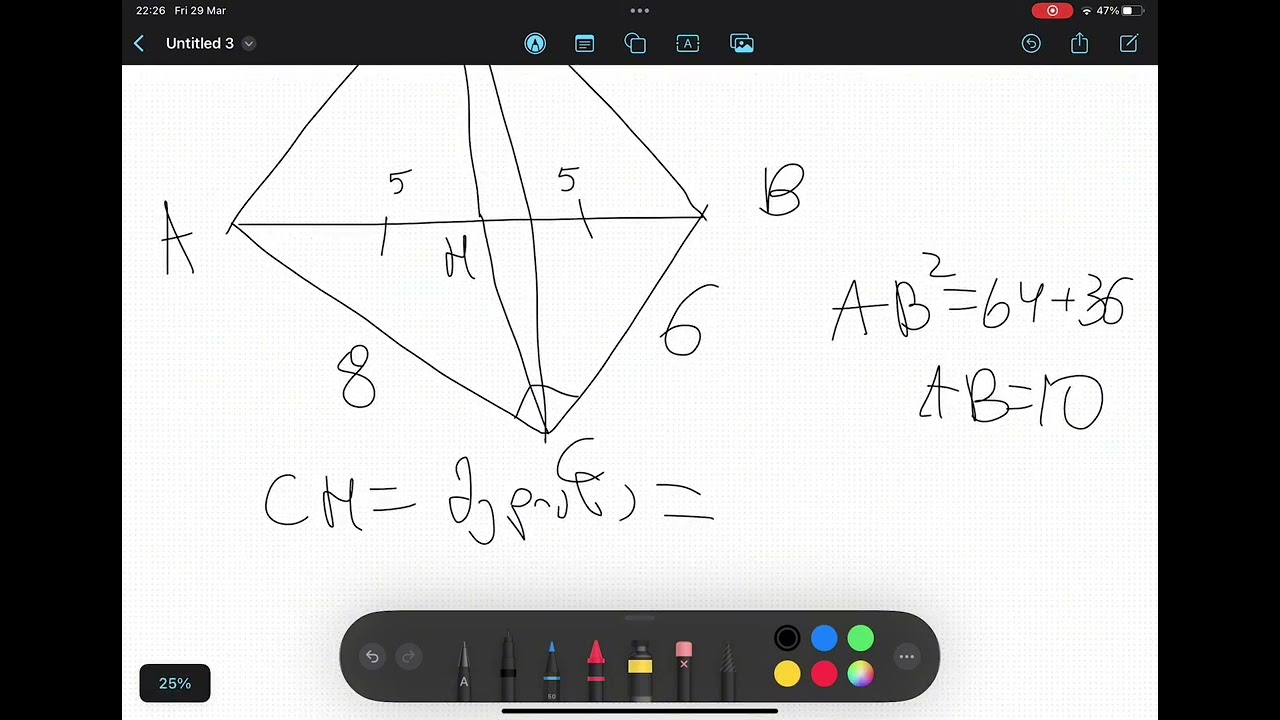 22:26 Fri 29 Mar
47%
Untitled 3
A
5
5
B
H
8
6
AB²=64+36
AB=10
C
CH=
=
25%
A
50